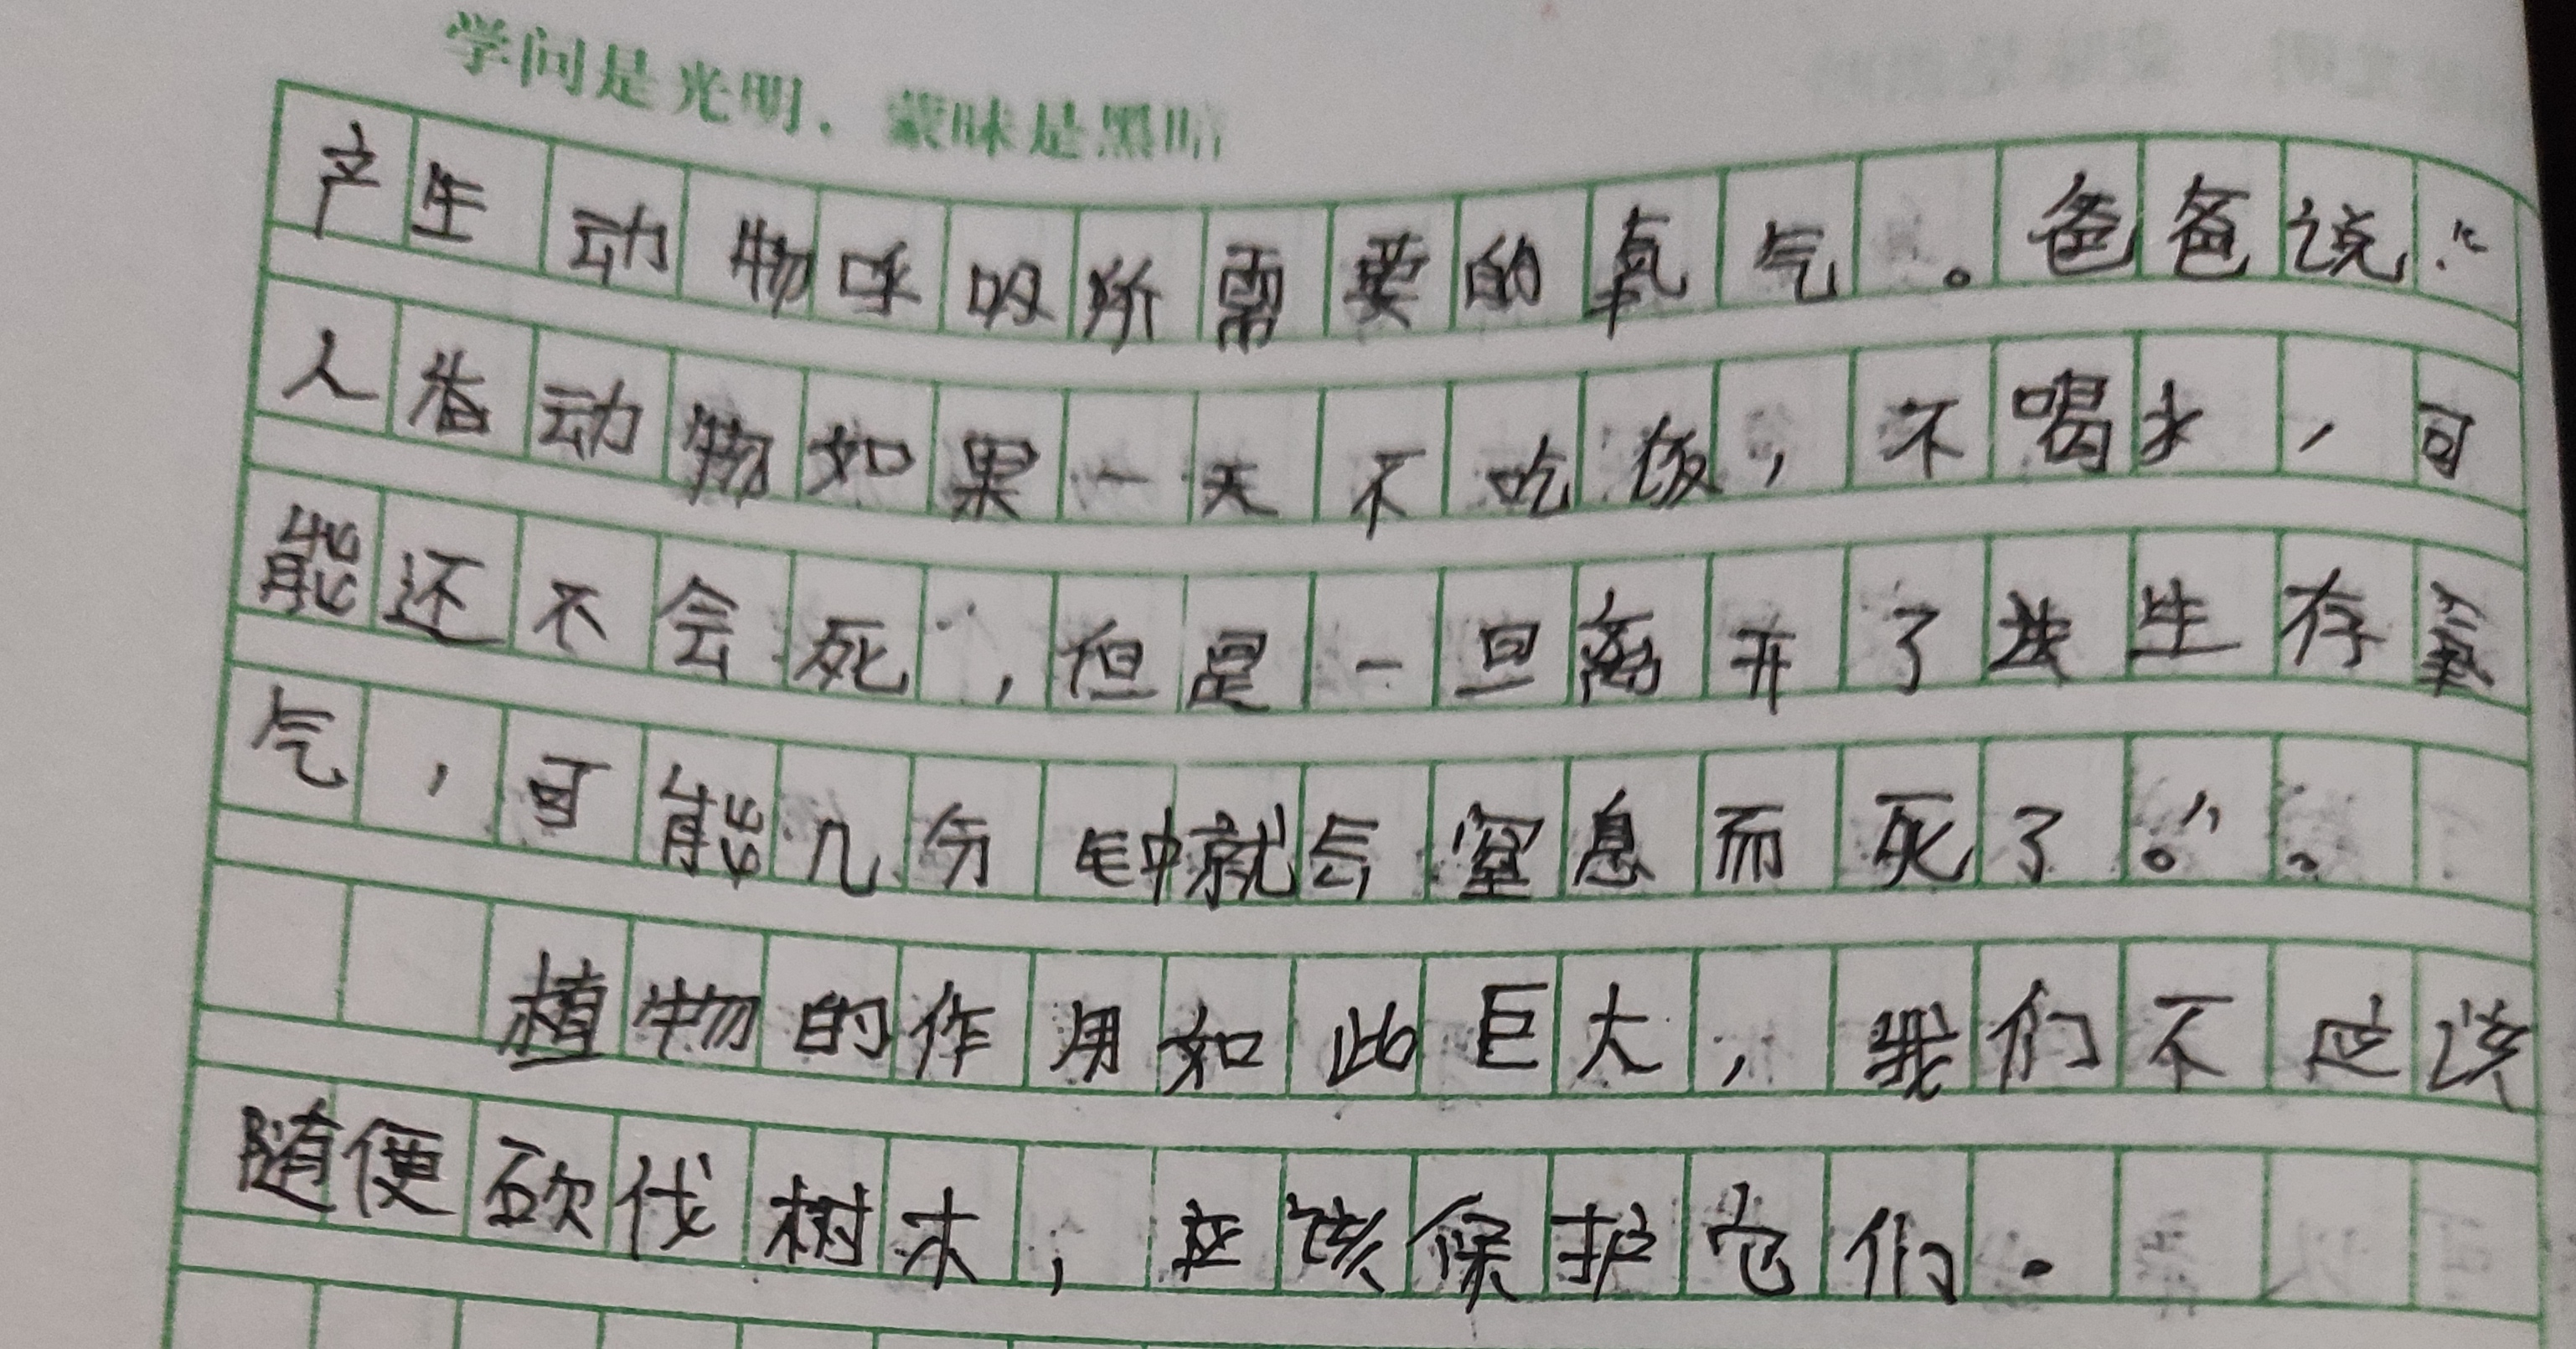 学问是光明，蒙昧是黑暗
产生动物呼吸所需要的氧气。爸爸说:“
人省动物如果一天不吃饭，不喝水，可
能还不会死，但是一旦离开了生存氧
气，可能几分钟就会窒息而死了。”。
植物的作用如此巨大，我们不应该
随便砍伐树木，应该保护它们。